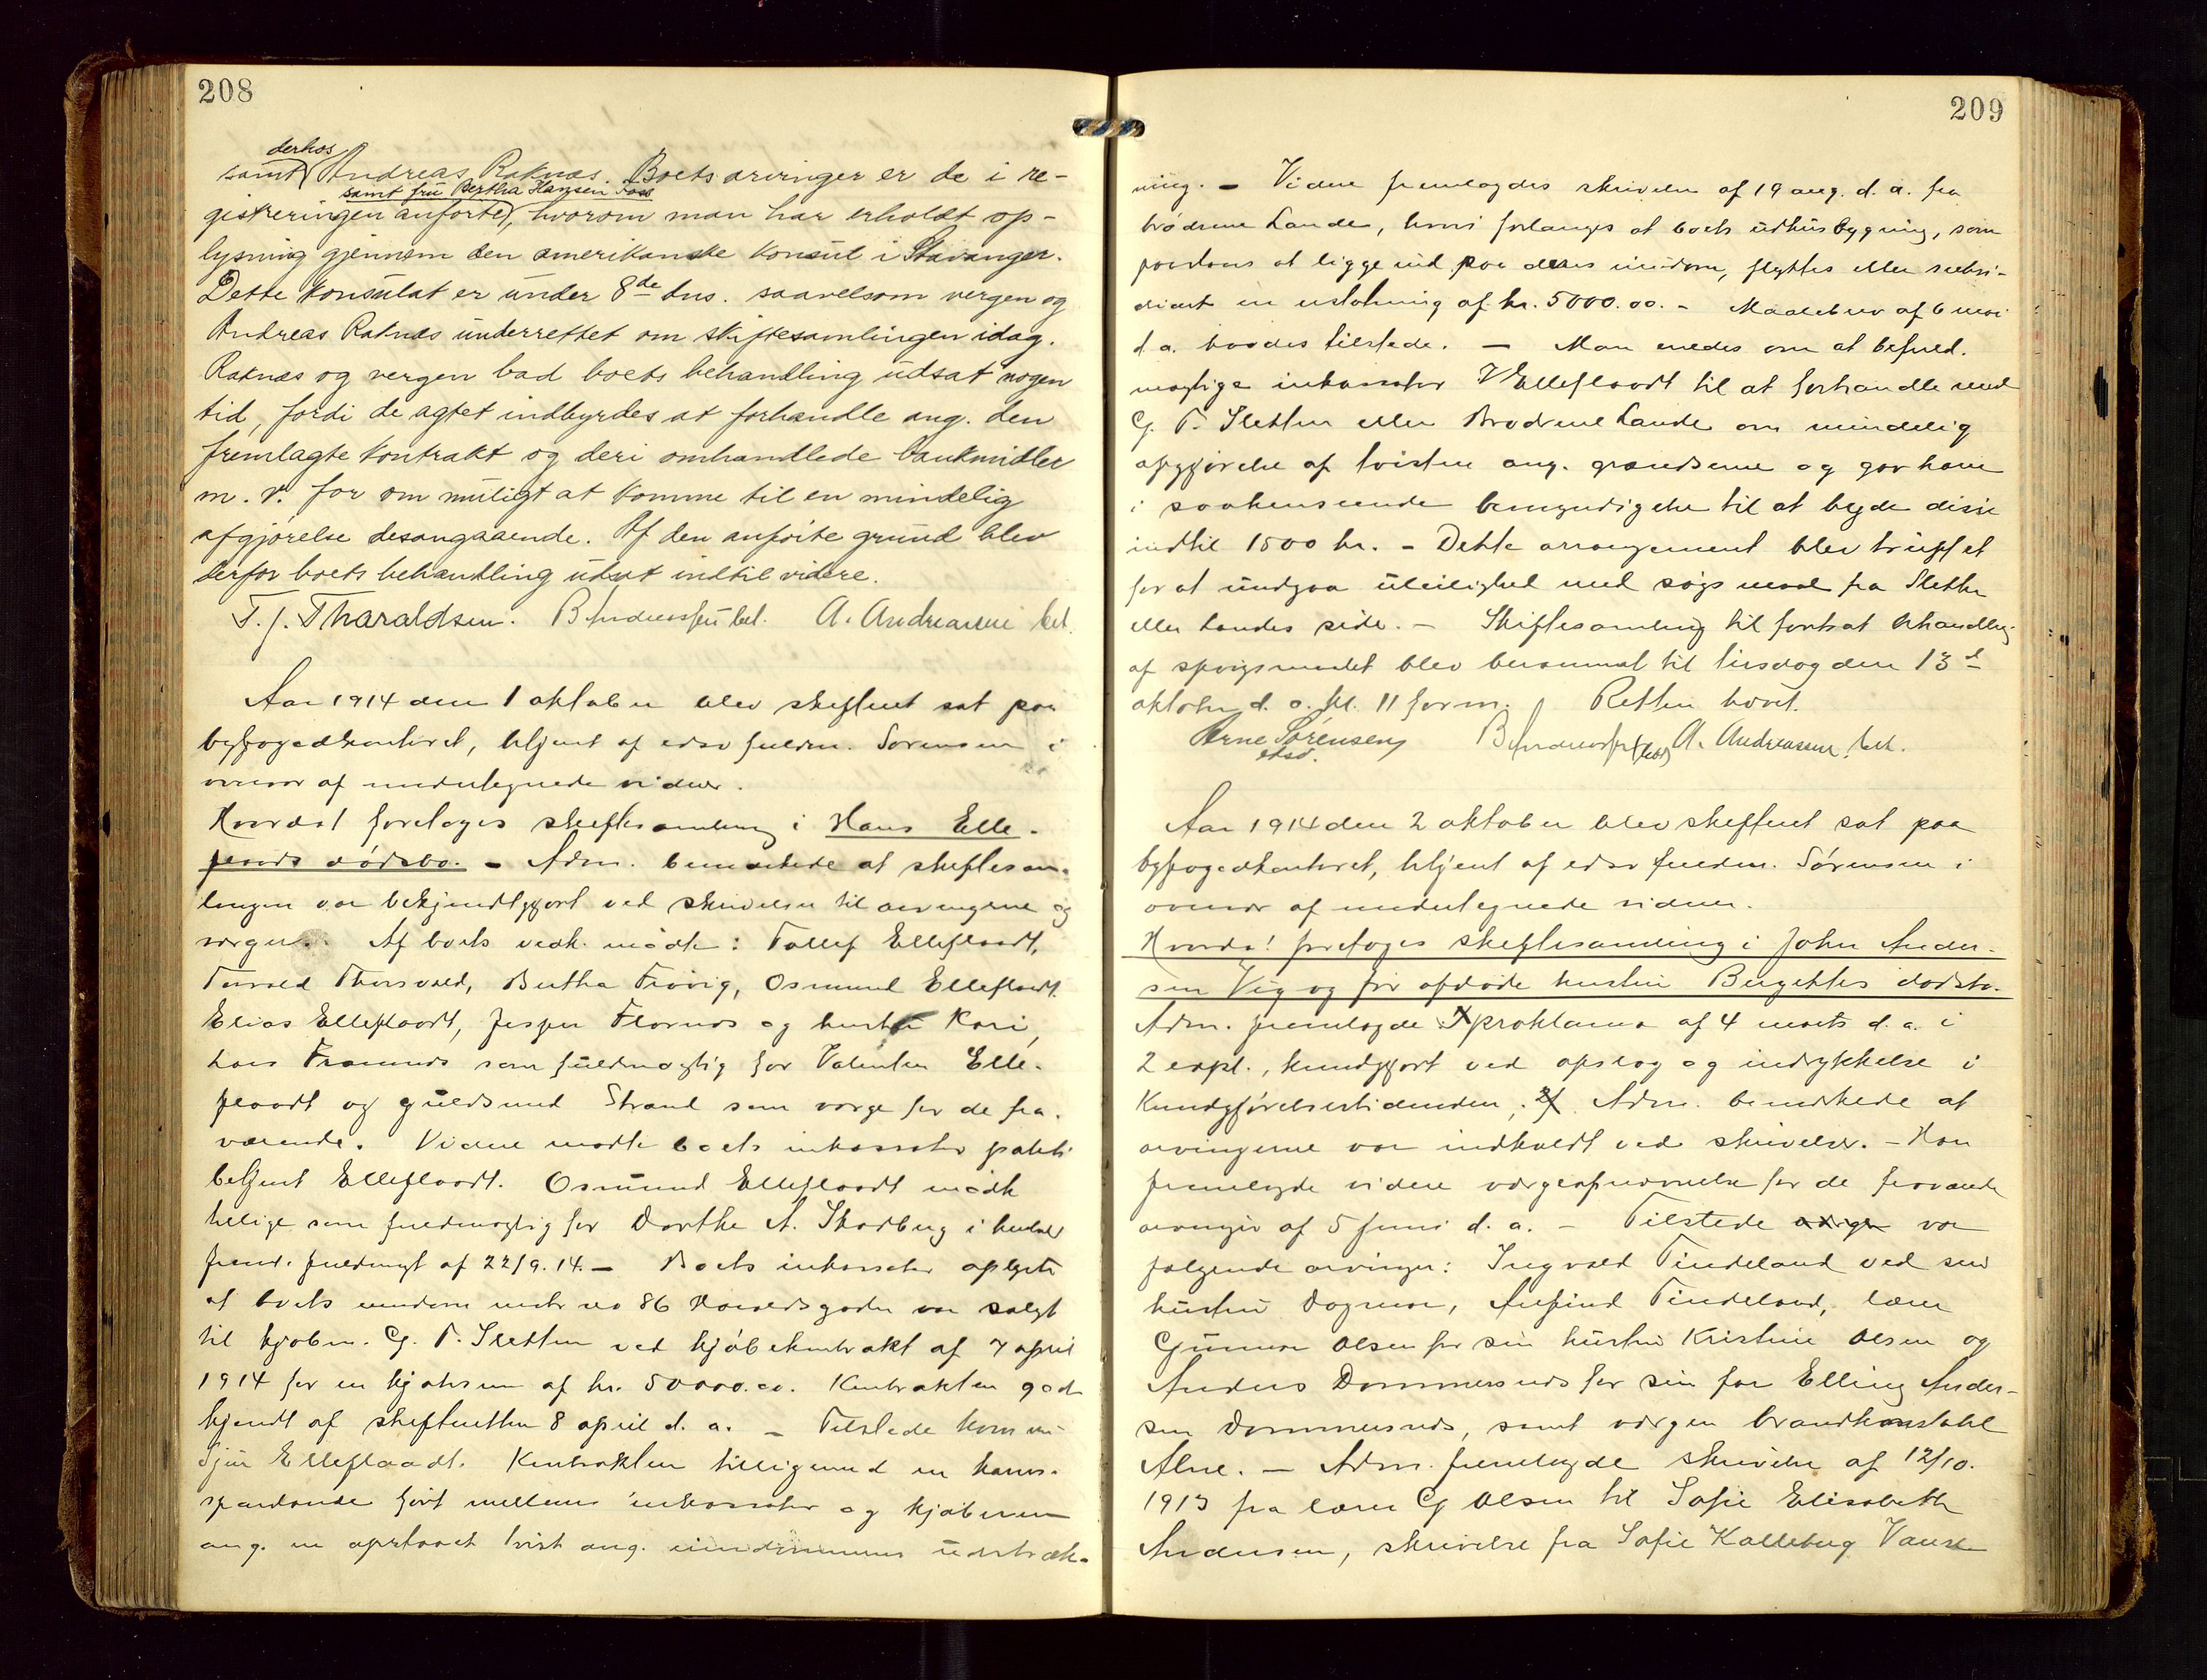 208
derhos
samt Andreas Raknæs. Boets arvinger er de i re-
samt fru Bertha Hansen Foss
gistreringen anførte, hvorom man har erholdt op-
lysning gjennem den amerikanske konsul i Stavanger.
Dette konsulat er under 8de ds. saavelsom vergen og
Andreas Raknæs underrettet om skiftesamlingen idag.
Raknæs og vergen bad boets behandling udsat nogen
tid, fordi de agtet indbyrdes at forhandle ang. den
fremlagte kontrakt og deri omhandlede bankmidler
m. v. for om muligt at komme til en mindelig
afgjørelse desangaaende. Af den anførte grund blev
derfor boets behandling udsat indtil videre.
T. J. Tharaldsen. B Andreassen bet. A. Andreassen bet.
Aar 1914 den 1 oktober blev skifteret sat paa
byfogedkontoret, betjent af edsv fuldm. Sørensen i
overvær af undertegnede vidner.
Hvorda! foretoges skiftesamling i Hans Elle-
flaads dødsbo. - Adm. bemærkede at skiftesam-
lingen var bekjendtgjort ved skrivelse til arvingerne og
værgen. Af boets vedk. mødte: Tollef Elleflaadt,
Torvald Thorsvald, Bertha Frøvig, Osmund Elleflaadt
Elias Elleflaadt, Jesper Flornæs og hustru Kari,
Hans Framnæs som fuldmægtig for Valentin Elle-
flaadt og guldsmed Strand som værge for de fra-
værende. Videre mødte boets inkassator politi-
betjent Elleflaadt. Osmund Elleflaadt mødte
tillige som fuldmægtig for Dorthe A. Skadberg i henhold
frem. fuldmagt af 22/9. 14. - Boets inkassator oplyste
at boets eiendom matr no 86 Haraldsgaden var solgt
til kjøbm. G. T. Sletten ved kjøbekontrakt af 7 april
1914 for en kjøbesum af kr. 50000.00. Kontrakten god-
kjendt af skifteretten 8 april d. a. - Tilstede kom nu
Sjur Elleflaadt. Kontrakten tilligemed en korre-
spondance ført mellem inkassator og kjøberen
ang. en opstaaet tvist ang. eiendommens udstræk-
209
ning. - Videre fremlagdes skrivelse af 19 aug. d. a. fra
brødrene Lande, hvori forlanges at boets udhusbygning, som
paastaaes at ligge ind paa deres eiendom, flyttes eller subsi-
diært en erstatning af kr. 5000.00. - Maalebrev af 6 mai
d. a. havdes tilstede. - Man enedes om at befuld-
mægtige inkassator Elleflaadt til at forhandle med
G. T. Sletten eller Brødrene Lande om mindelig
afgjørelse af tvisten ang. grændserne og gav ham
i saahenseende bemyndigelse til at byde disse
indtil 1500 kr. - Dette arrangement blev truffet
for at undgaa uleilighed med søgsmaal fra Sletten
eller Landes side. - Skiftesamling til fortsat behandling
af spørgsmaalet blev berammet til tirsdag den 13de
oktober d. a. kl. 11 form. Retten hævet.
Arne Sørensen B Andreassen (bet) A. Andreassen, bet.
edsv.
Aar 1914 den 2 oktober blev skifteret sat paa
byfogedkontoret, betjent af edsv fuldm. Sørensen i
overvær af undertegnede vidner.
Hvorda! foretoges skiftesamling i John Ander-
sen Vig og før afdøde hustru Birgittes dødsbo.
Adm. fremlagde proklama af 4 marts d. a. i
2 expl., kundgjort ved opslag og indrykkelse i
Kundgjørelsestidenden. Adm. bemærkede at
arvingerne var indkaldt ved skrivelse. - Han
fremlagde videre værgeopnævnelse for de fraværende
arvinger af 5 juni d. a. - Tilstede var
følgende arvinger: Ingvald Tindeland ved sin
hustru Dagmar, Arfind Tindeland, lærer
Gunnar Olsen for sin hustru Kristine Olsen og
Anders Dommersnes for sin far Elling Ander-
sen Dommersnes, samt værgen brandkonstabel
Alne. - Adm. fremlagde skrivelse af 12/10.
1913 fra lærer G Olsen til Sofie Elisabeth
Andersen, skrivelse fra Sofie Kalleberg Vanse